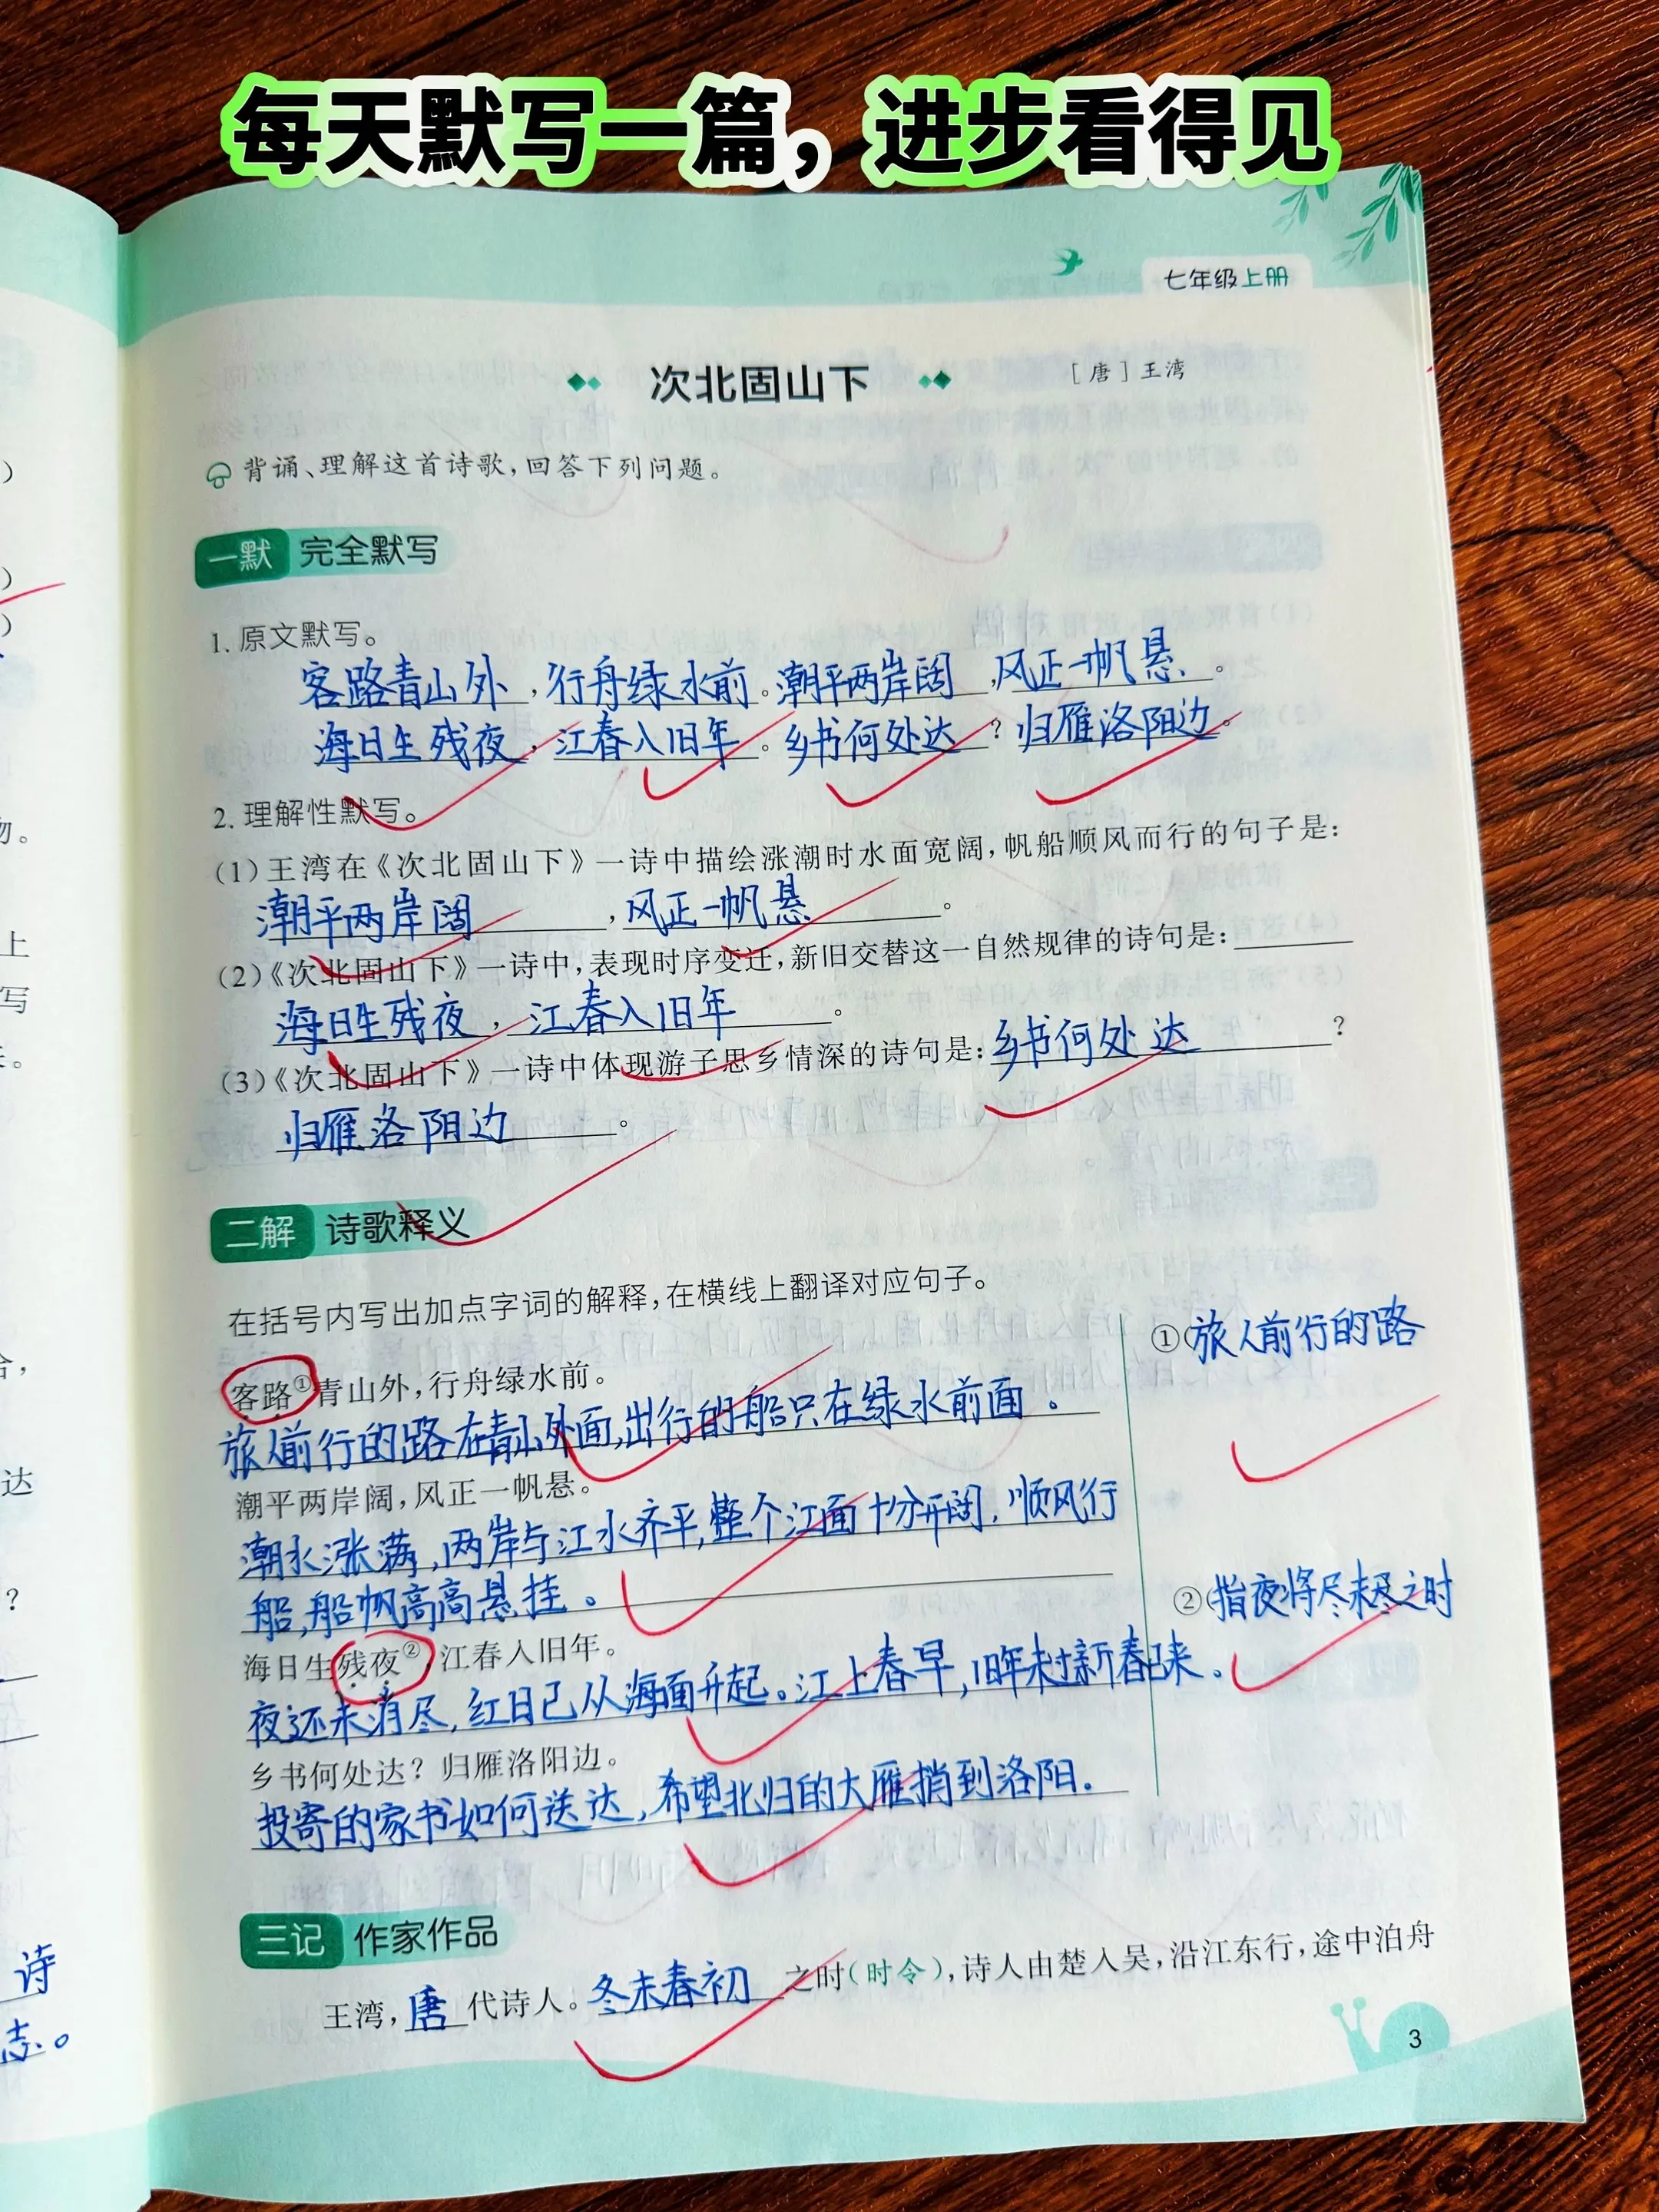 每天默写一篇，进步看得见
七年级上册
次北固山下 ［唐］王湾
背诵、理解这首诗歌，回答下列问题。
一默 完全默写
1. 原文默写。
客路青山外，行舟绿水前。潮平两岸阔，风正一帆悬。
海日生残夜，江春入旧年。乡书何处达？归雁洛阳边。
2. 理解性默写。
(1)王湾在《次北固山下》一诗中描绘涨潮时水面宽阔，帆船顺风而行的句子是：
潮平两岸阔，风正一帆悬。
(2)《次北固山下》一诗中，表现时序变迁，新旧交替这一自然规律的诗句是：
海日生残夜，江春入旧年。
(3)《次北固山下》一诗中体现游子思乡情深的诗句是：乡书何处达？
归雁洛阳边。
二解 诗歌释义
在括号内写出加点字词的解释，在横线上翻译对应句子。
客路①青山外，行舟绿水前。
旅人前行的路在青山外面，出行的船只在绿水前面。
潮平两岸阔，风正一帆悬。
潮水涨满，两岸与江水齐平，整个江面十分开阔，顺风行
船，船帆高高悬挂。
海日生残夜②，江春入旧年。
夜还未消尽，红日已从海面升起。江上春早，旧年未过新春已来。
乡书何处达？归雁洛阳边。
投寄的家书如何送达，希望北归的大雁捎到洛阳.
①(旅人前行的路
②(指夜将尽未尽之时
三记 作家作品
王湾，唐代诗人。冬末春初之时(时令)，诗人由楚入吴，沿江东行，途中泊舟
3
)
)
)
物。
上
写
达
？
诗
志。